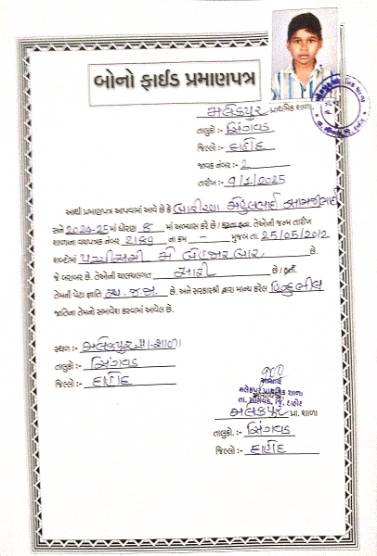 બોનો ફાઈડ પ્રમાણપત્ર
મલેકપુર પ્રાથમિક શાળા,
તાલુકો :- સિંગવડ
જિલ્લો :- દાહોદ
જાવક નંબર :- 2
તારીખ :- 9/1/2025
આથી પ્રમાણપત્ર આપવામાં આવે છે કે બારીયા
સને 2024-25 માં ધોરણ 8 માં અભ્યાસ કરે છે / કરતા હતા. તેઓની જન્મ તારીખ
શાળાના વયપત્રક નંબર ના ક્રમ — મુજબ તા. 25/05/2012
શબ્દોમાં પચ્ચીસમી મે બે હજાર બાર છે.
જે બરાબર છે. તેઓની ચાલચલગત સારી છે / હતી.
તેમની પેટા જ્ઞાતિ અ.જ.જા. છે. અને સરકારશ્રી દ્વારા માન્ય કરેલ હિન્દુ ભીલ
જાતિના તેમનો સમાવેશ કરવામાં આવેલ છે.
સ્થળ :- મલેકપુર પ્રા.શાળા
તાલુકો :- સિંગવડ
જિલ્લો :- દાહોદ
આચાર્ય
મલેકપુર પ્રાથમિક શાળા
તા. સીંગવડ, જિ. દાહોદ
મલેકપુર પ્રા. શાળા
તાલુકો :- સિંગવડ
જિલ્લો :- દાહોદ